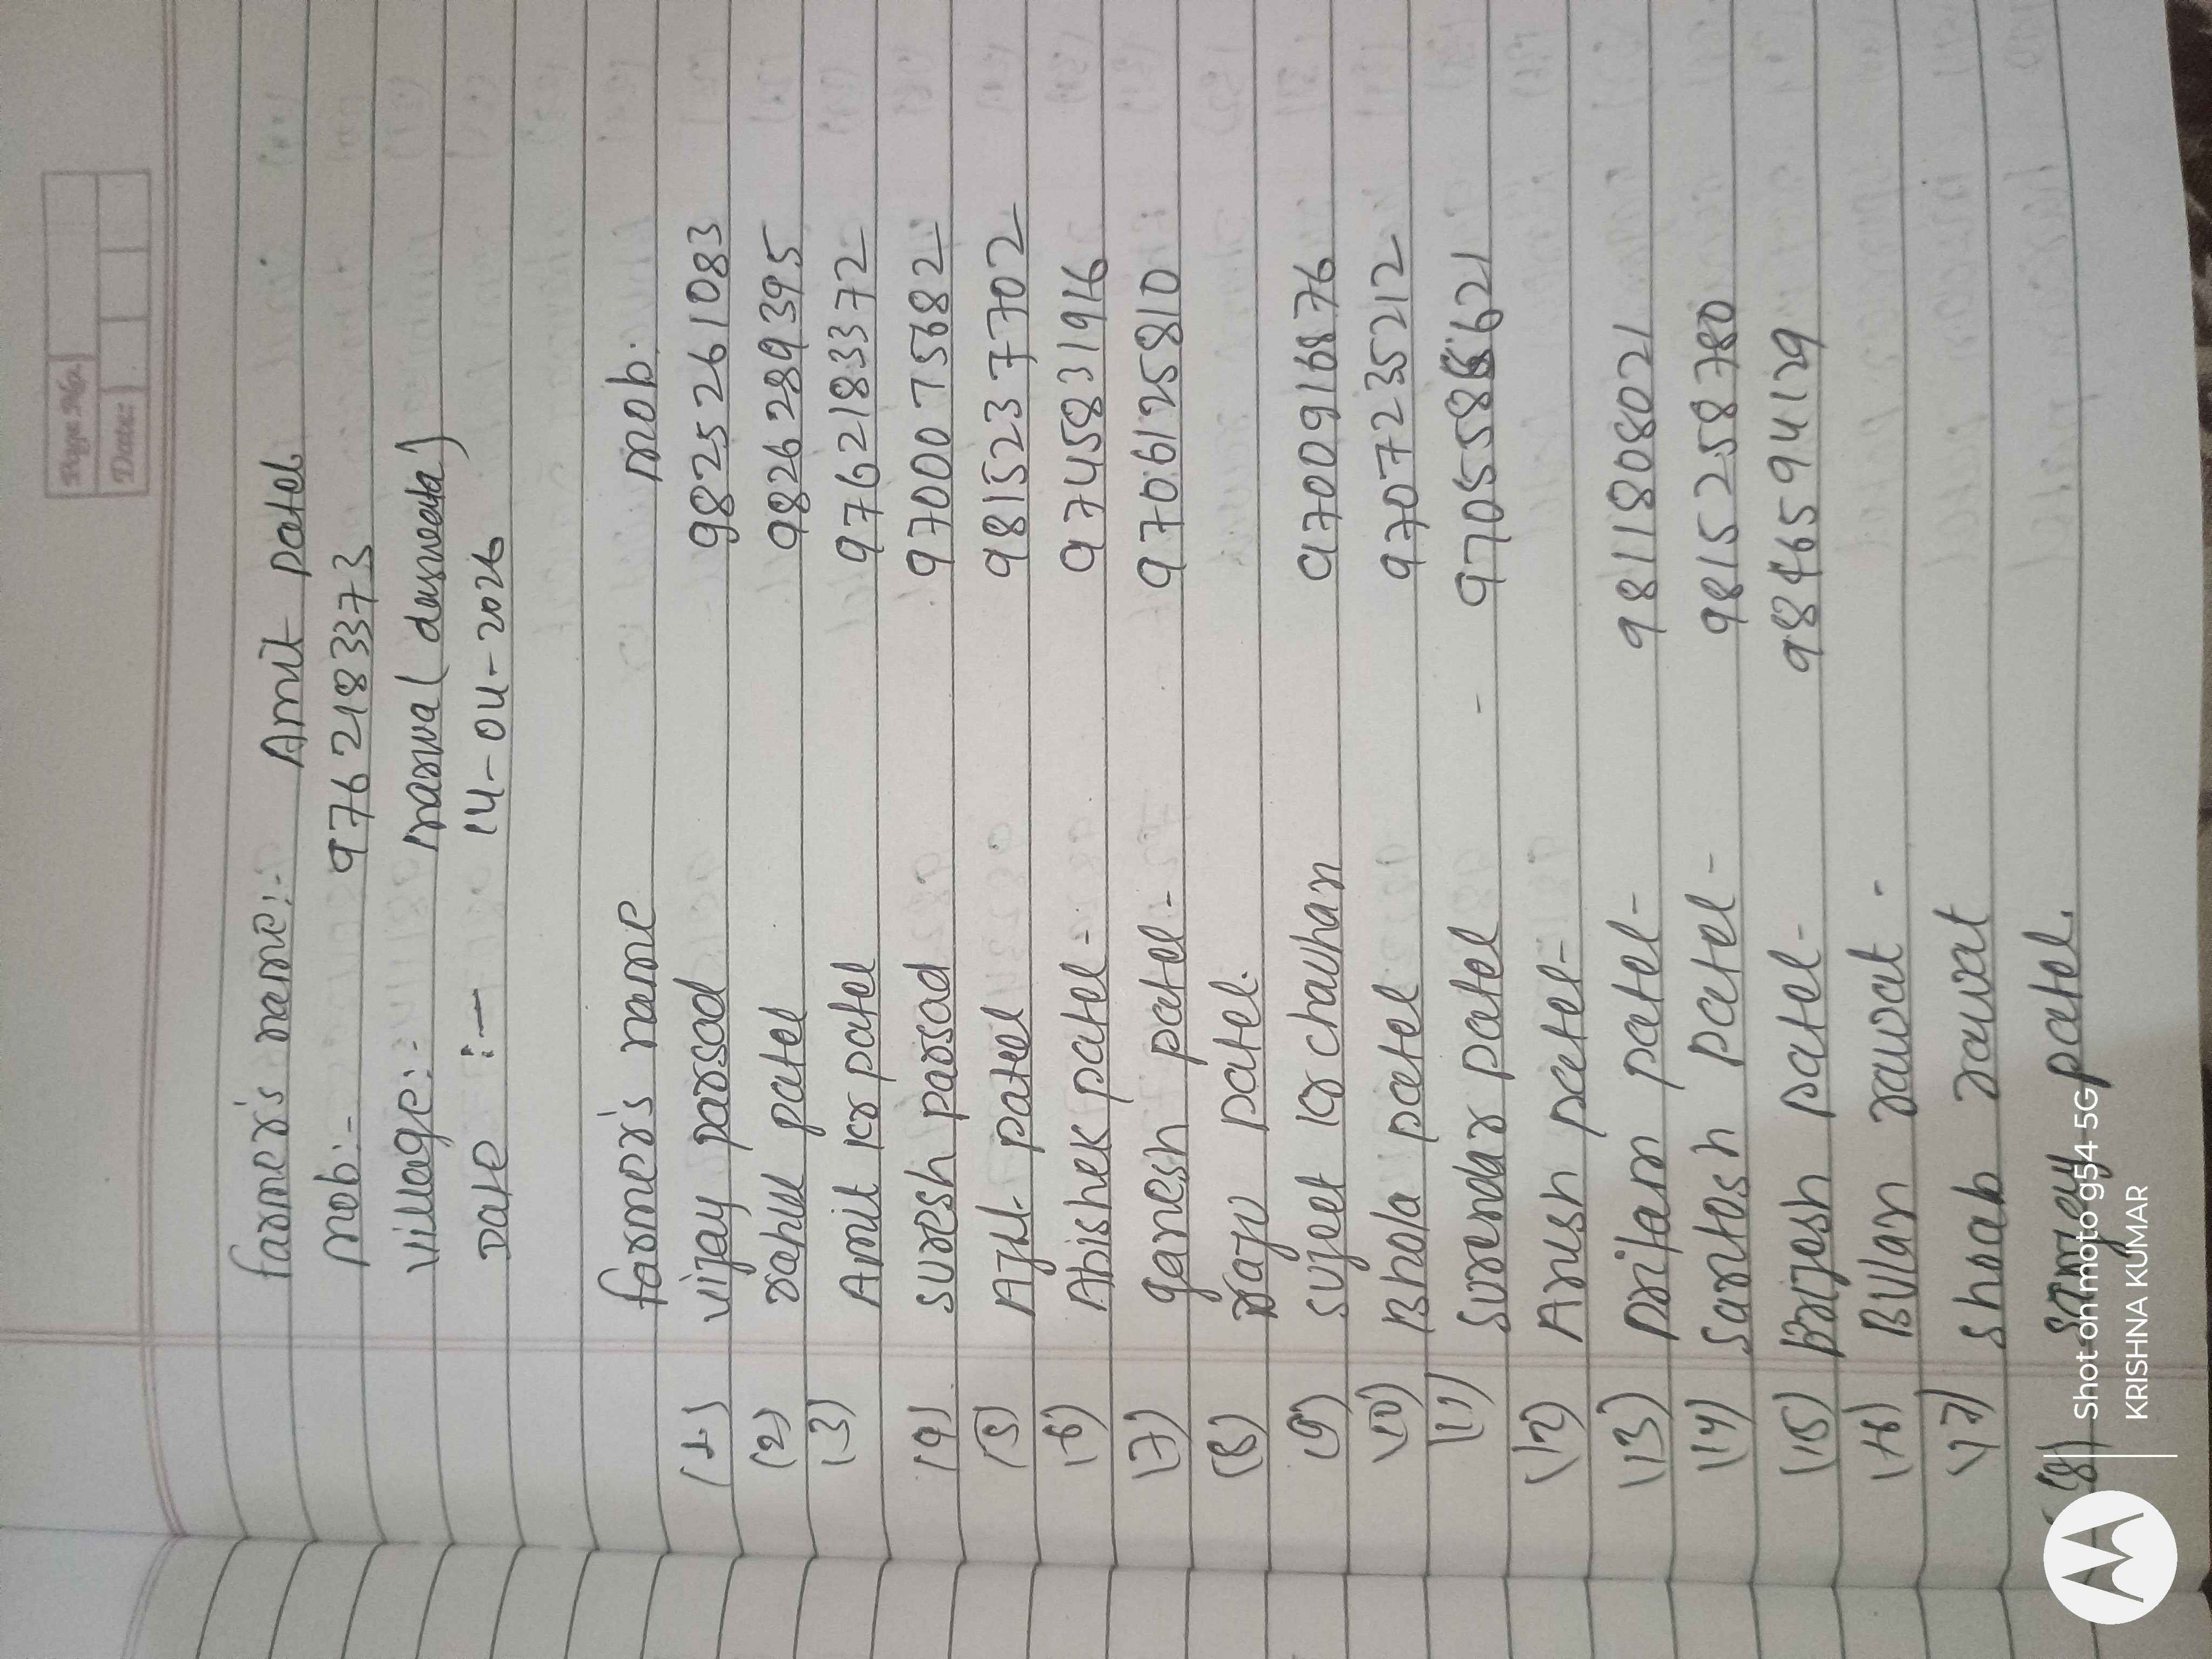 Page No.
Date:
farmer's name:- Amit patel
mob:- 9762183373
village:- (dasmeeta)
Date :- 14-04-2026
farmer's name mob.
(1) vijay parsad 9825261083
(2) rahul patel 9826289395
(3) Amit kr patel 9762183372
(4) suresh parsad 9700075682
(5) patel 9815237702
(6) Abishek patel - 9745831916
(7) ganesh patel - 9706125810
(8) Raju patel.
(9) sujeet kr chauhan 9700916876
(10) Bhola patel 9707235212
(11) surendar patel - 621
(12) Anush patel -
(13) pritam patel - 9811808021
(14) santosh patel - 9815258780
(15) Brijesh patel - 9846594129
(16) Bulan rawat -
(17) shoab rawat
(18) patel.
Shot on moto g54 5G
KRISHNA KUMAR